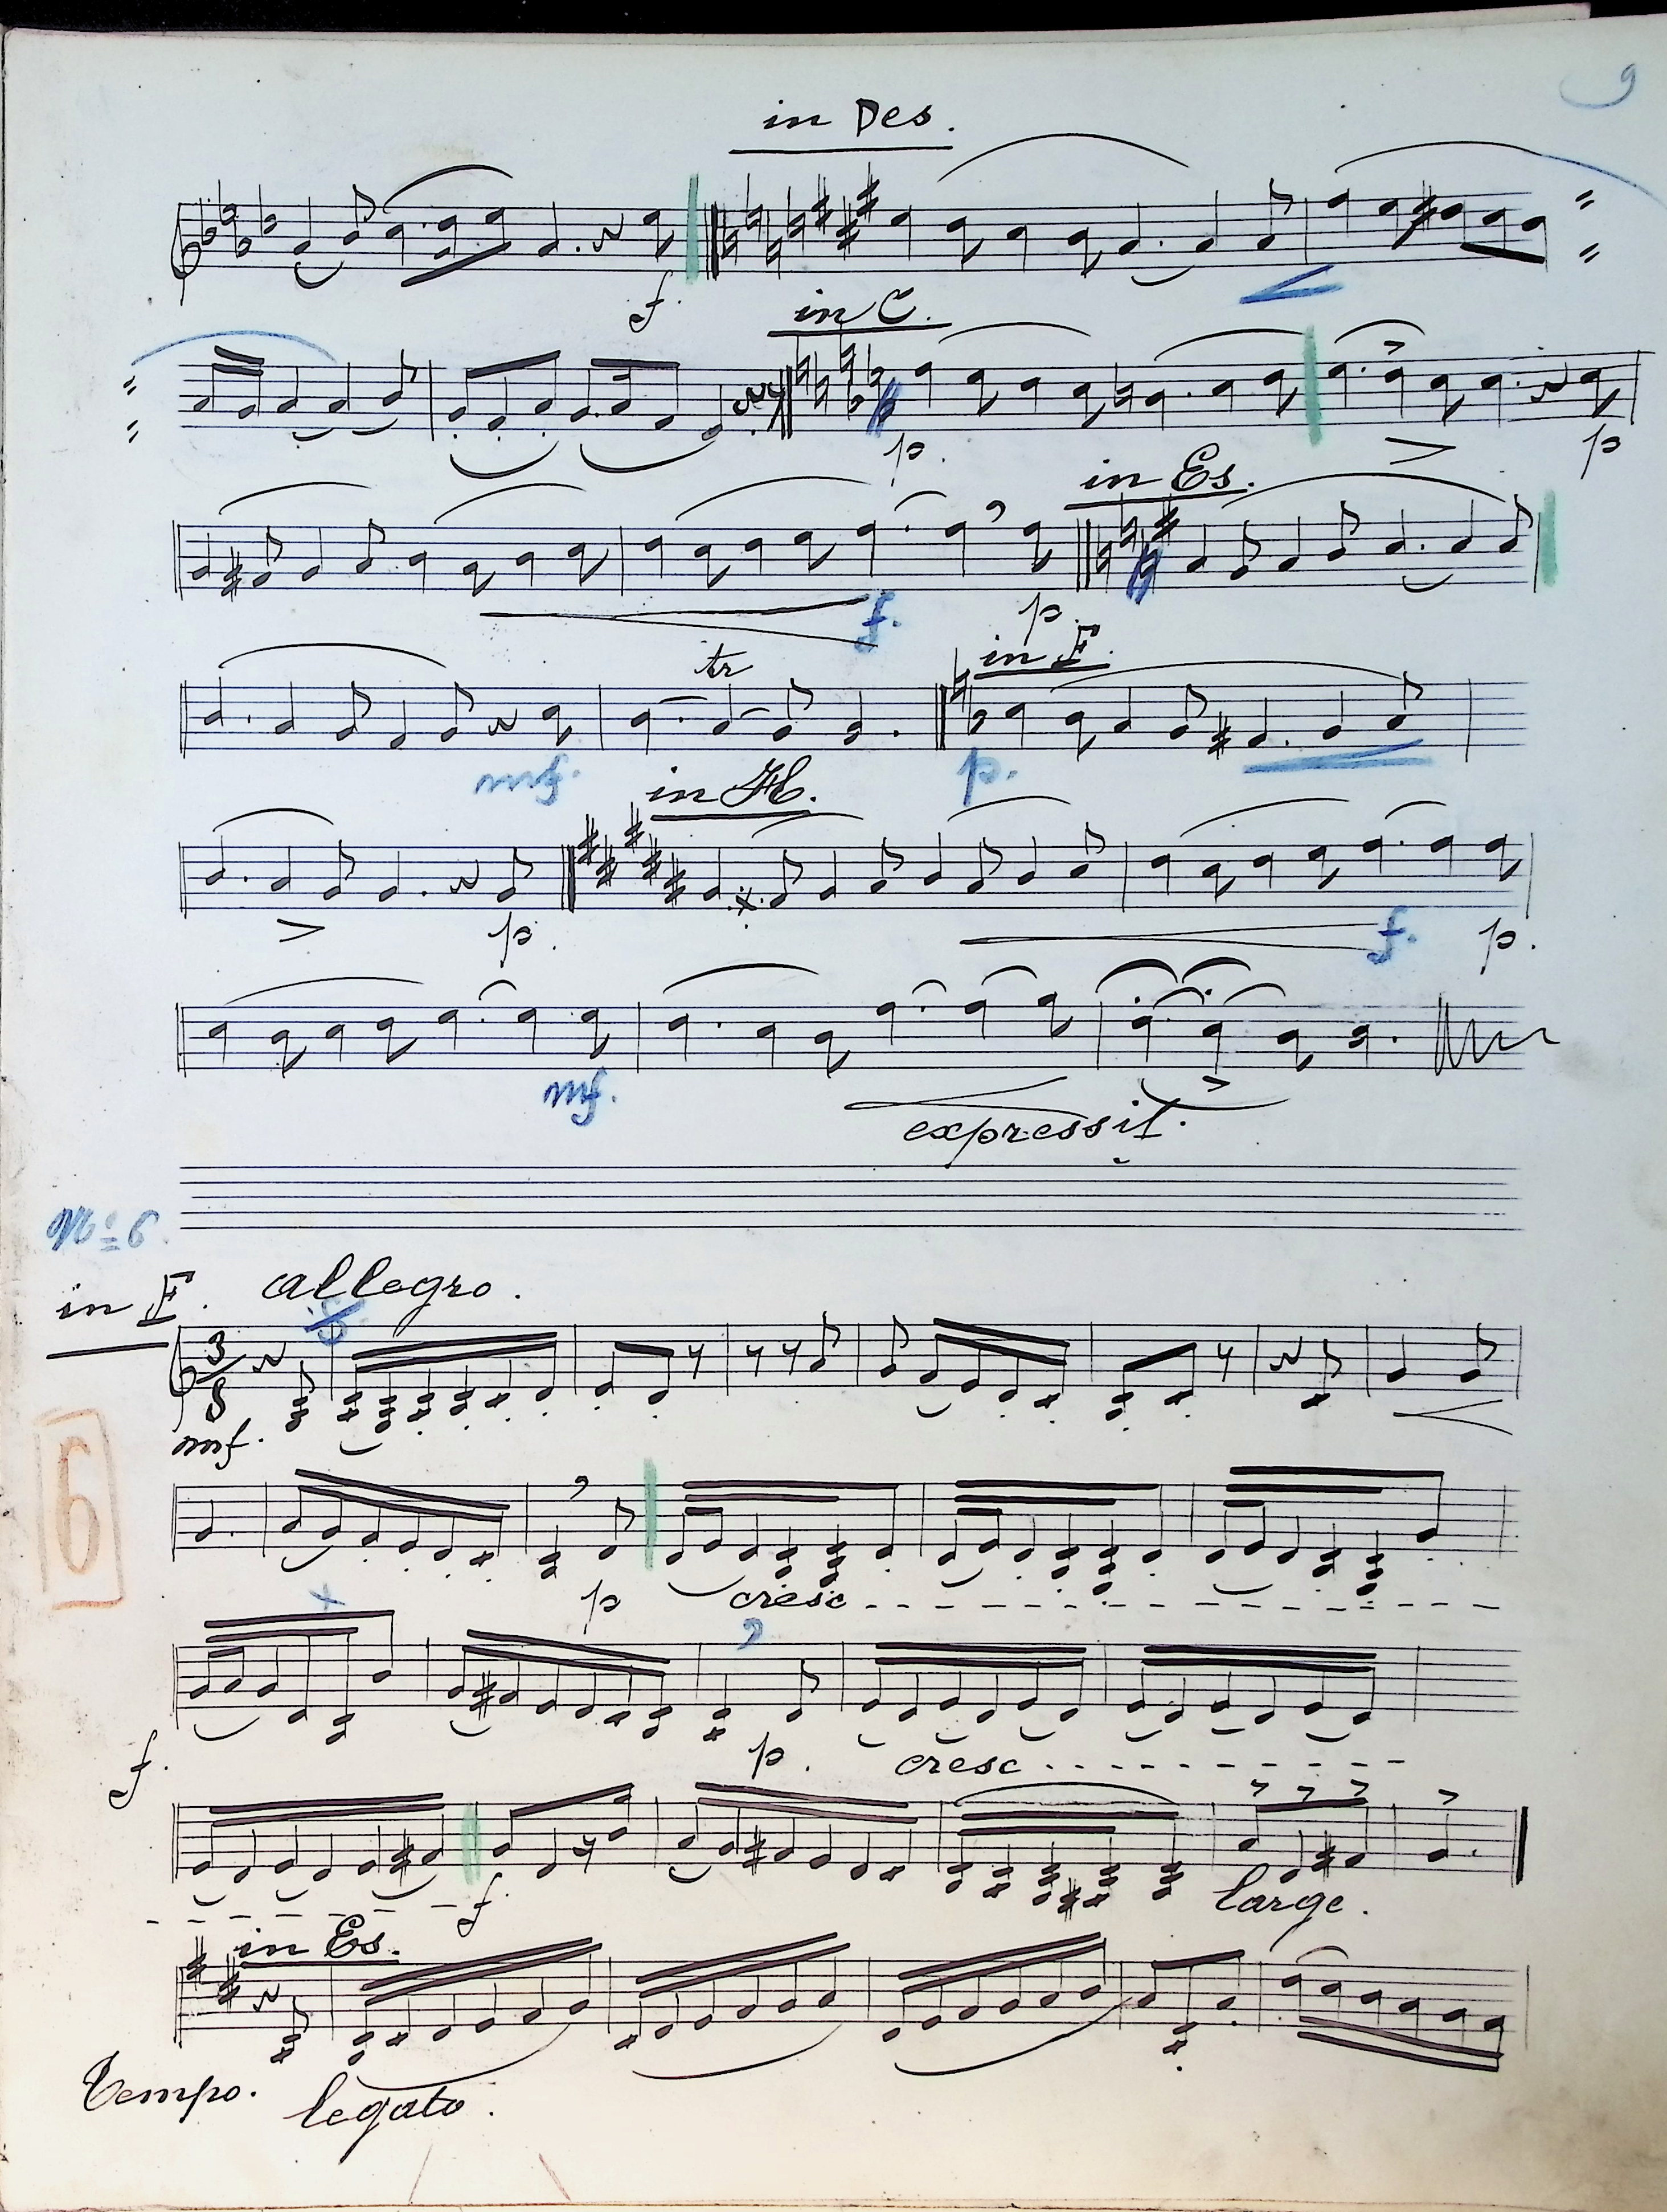 9
in Des.
f.
in C.
p. p
in Es.
f. p.
tr
in F.
mf. p.
in H.
p. f. p.
mf.
expressif.
№ 6.
in F. allegro.
3
8
mf.
6
p cresc
f. p. cresc
f. large.
in Es.
Tempo. legato.